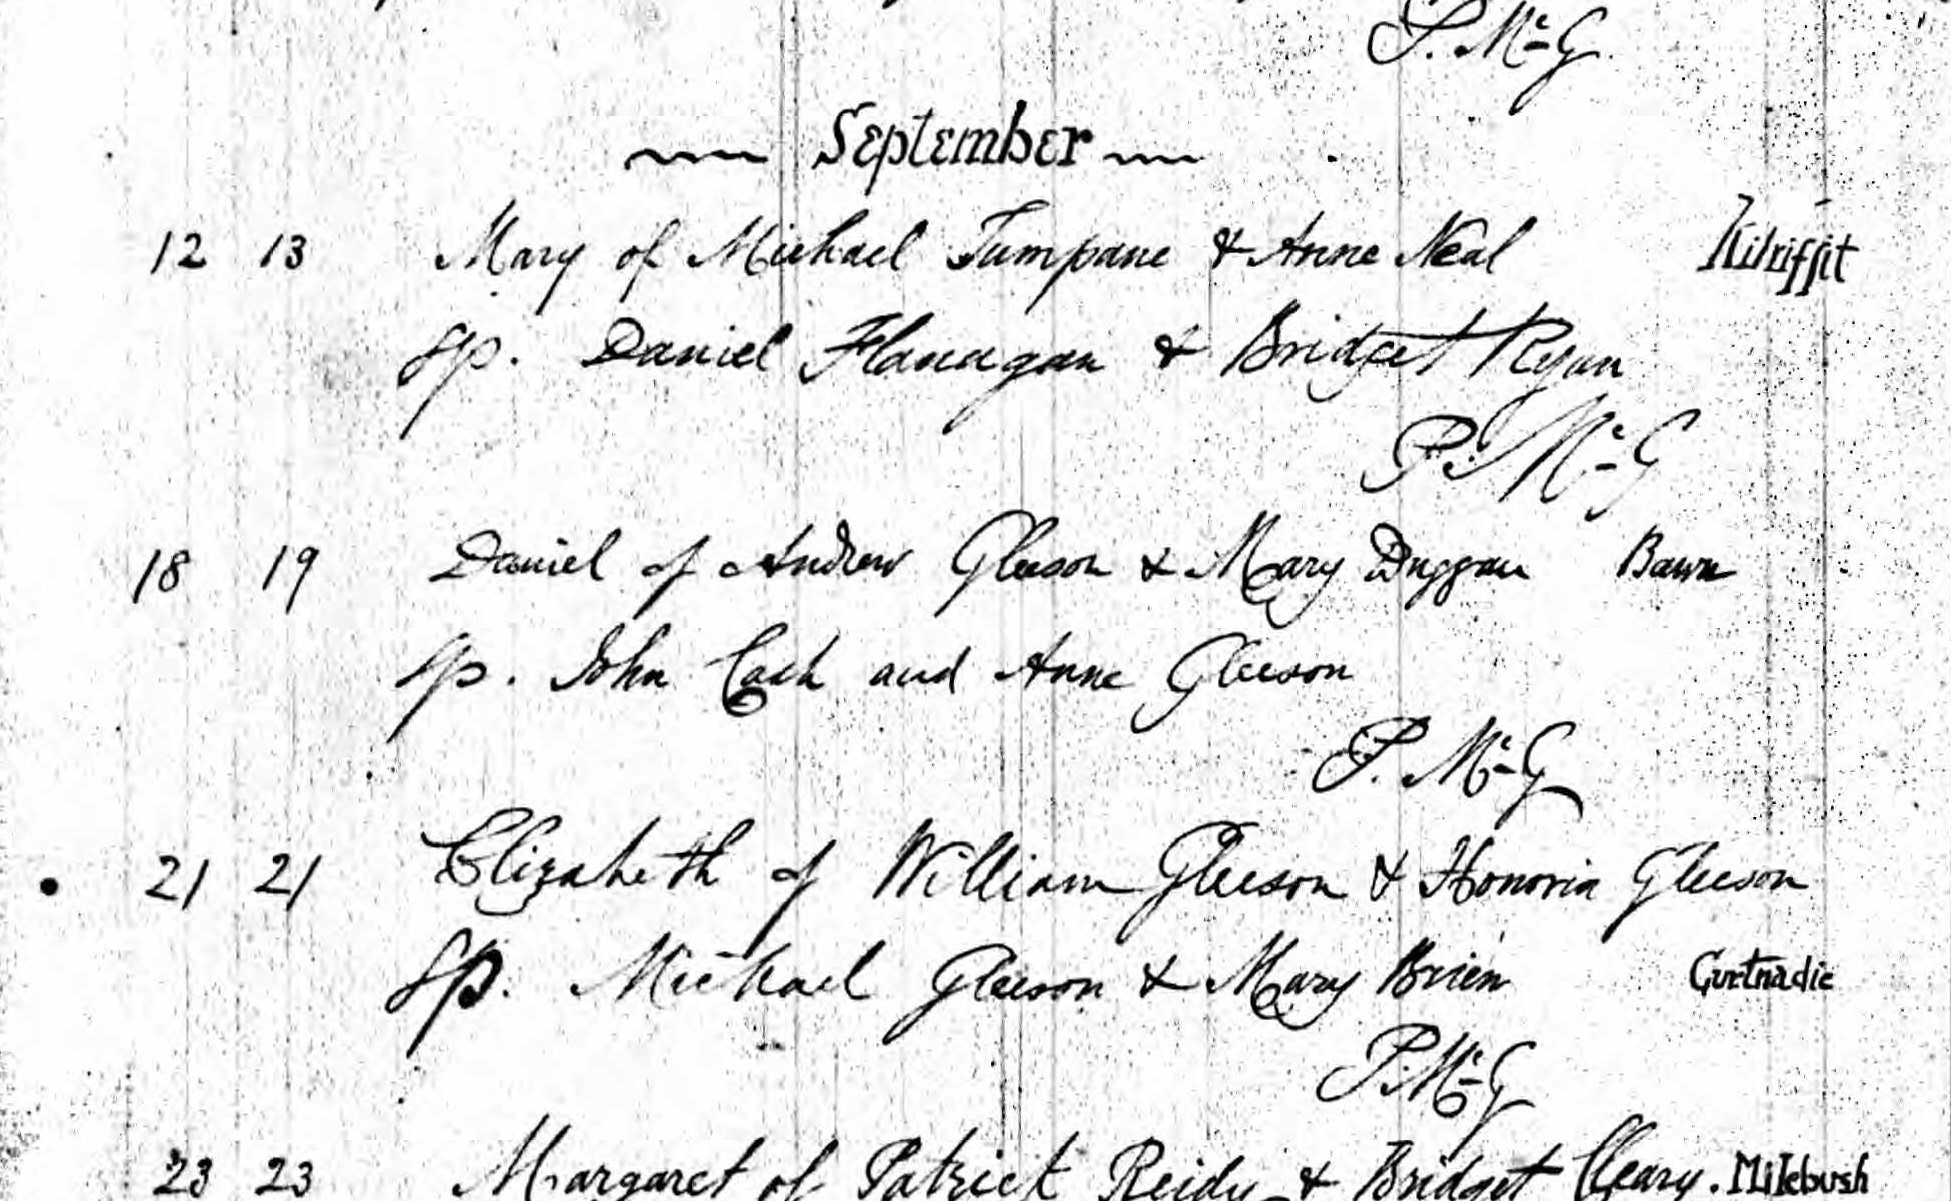 P. McG
September
12 13 Mary of Michael Tumpane & Anne Neal Kilriffit
Sp. Daniel Flanagan & Bridget Ryan
P. McG
18 19 Daniel of Andrew Gleeson & Mary Duggan Bawn
Sp. John Cash and Anne Gleeson
P. McG
21 21 Elizabeth of William Gleeson & Honoria Gleeson
Sp. Michael Gleeson & Mary Brien Gurtnadie
P. McG
23 23 Margaret of Patrick Reidy & Bridget Cleary. Milebush